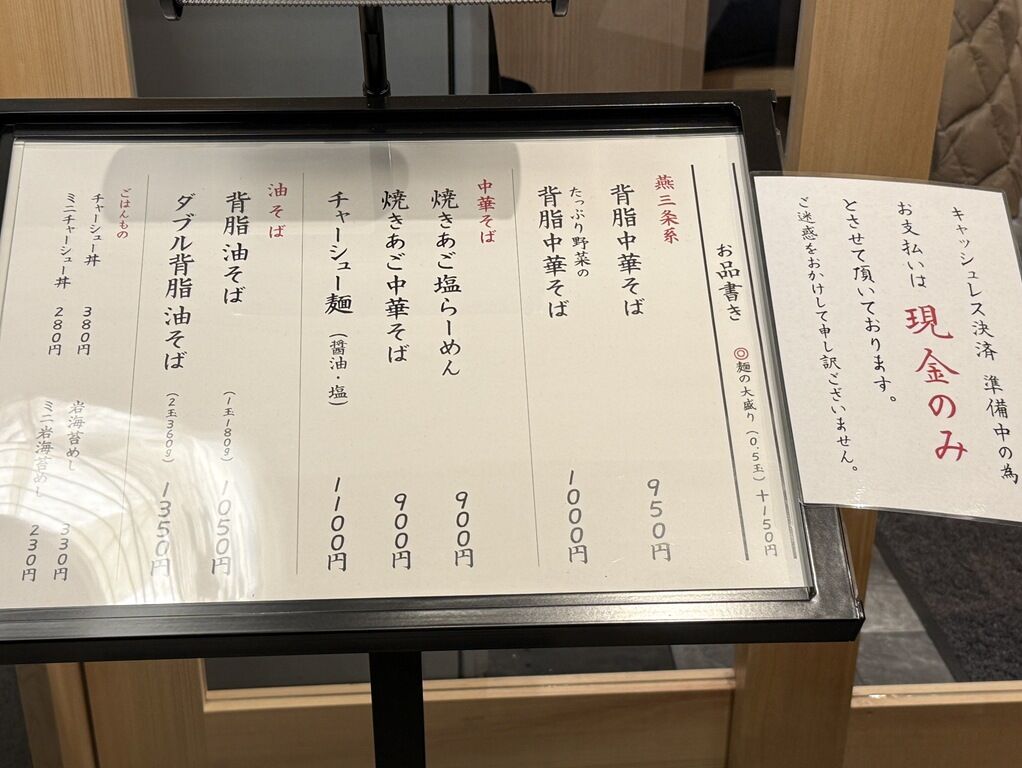 お品書き
◎麺の大盛り（0.5玉）+150円
燕三条系
背脂中華そば 950円
たっぷり野菜の
背脂中華そば 1000円
中華そば
焼きあご塩らーめん 900円
焼きあご中華そば 900円
チャーシュー麺（醤油・塩） 1100円
油そば
背脂油そば（1玉180g） 1050円
ダブル背脂油そば（2玉360g） 1350円
ごはんもの
チャーシュー丼 380円
ミニチャーシュー丼 280円
岩海苔めし 330円
ミニ岩海苔めし 230円
キャッシュレス決済 準備中の為
お支払いは 現金のみ
とさせて頂いております。
ご迷惑をおかけして申し訳ございません。